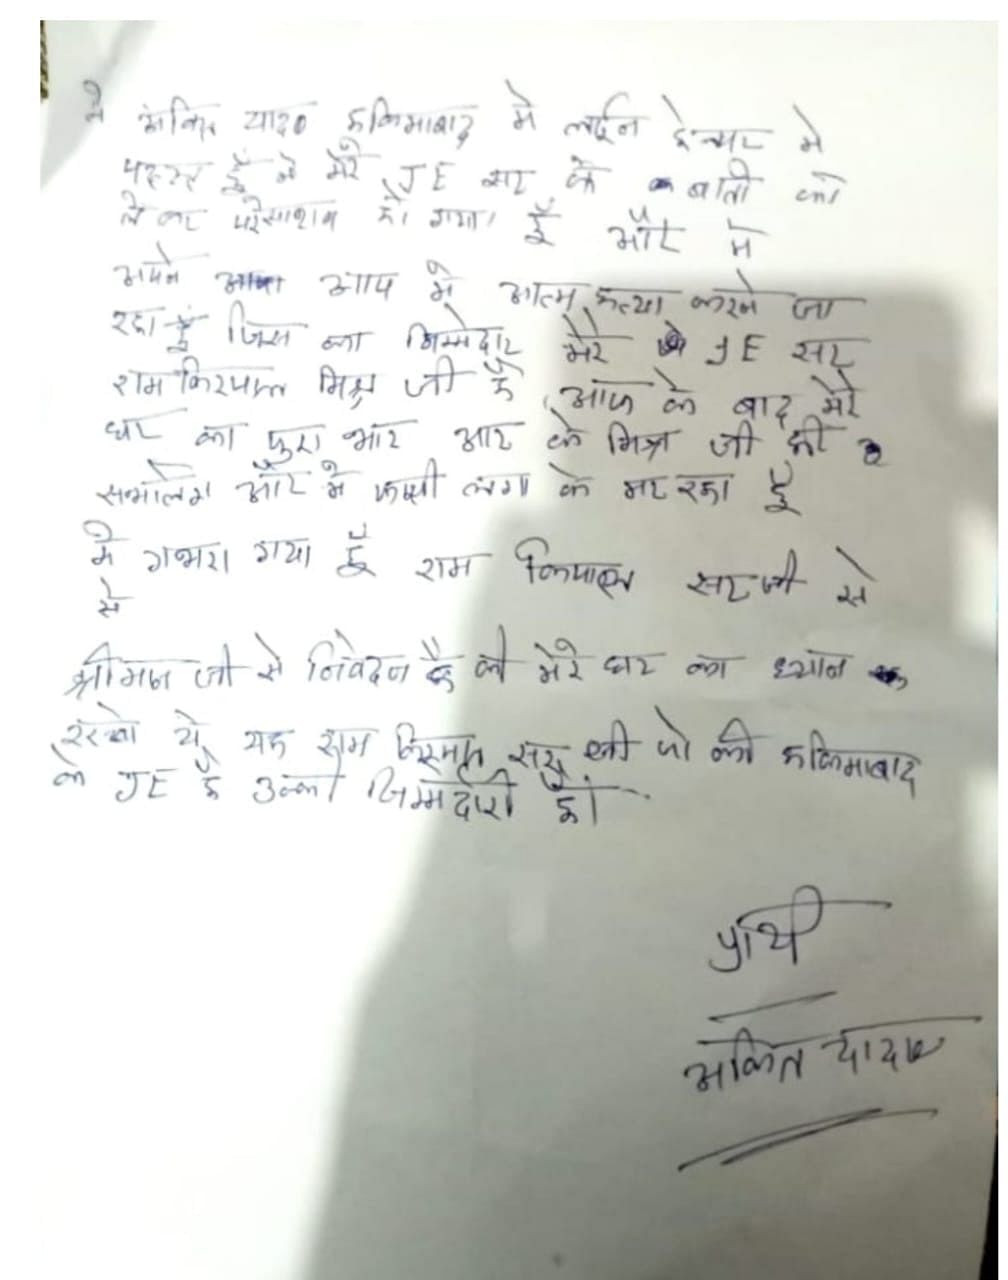 मै अंकित यादव हकिमाबाद मे लाईन हेल्पर मे
हूँ मे मेरे JE सर के बातो को
लेकर परेसाशान हो गया हूँ और मे
अपने आप मे आत्म हत्या करने जा
रहा हूं जिस का जिम्मेदार मेरे JE सर
राम किरपाल मिश्र जी है आज के बाद मेरे
घर का पुरा भार आर के मिश्रा जी ही
और मे फासी लगा के मर रहा हूँ
मे गभरा गया हूँ राम किपाल सर जी से
से
श्रीमान जी से निवेदन है की मेरे घर का ध्यान
रखे ये यह राम जो की हकिमाबाद
के JE है उनकी जिम्मेदारी हो
प्राथी
अंकित यादव